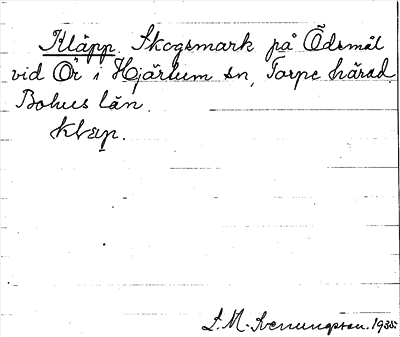 Kläpp. Skogsmark på Ödsmål
vid Ör i Hjärtum sn, Torpe härad.
Bohus län.
klæp.
L. M. Svenungsson. 1935.